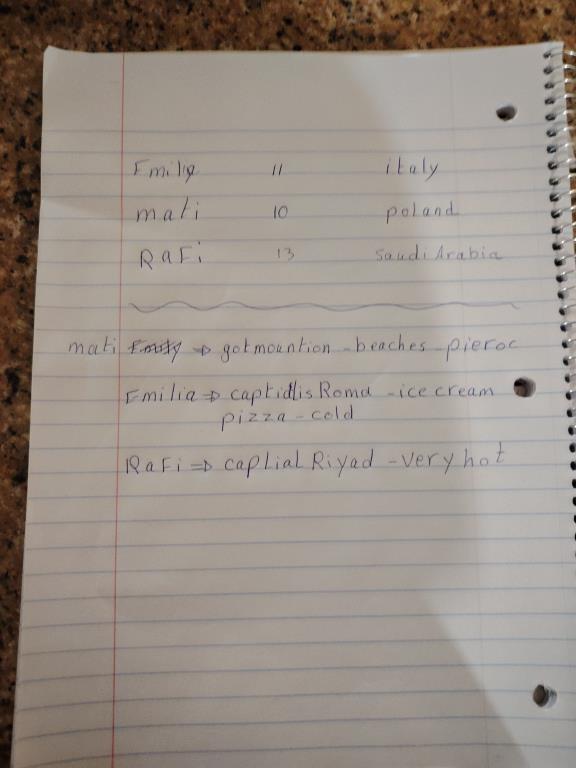 Emily 11 italy
mati 10 poland
RaFi 13 Saudi Arabia
mati Emily ⇒ got mountion - beaches - pieroc
Emilia ⇒ captidlis Roma - ice cream
pizza - cold
RaFi ⇒ caplial Riyad - very hot